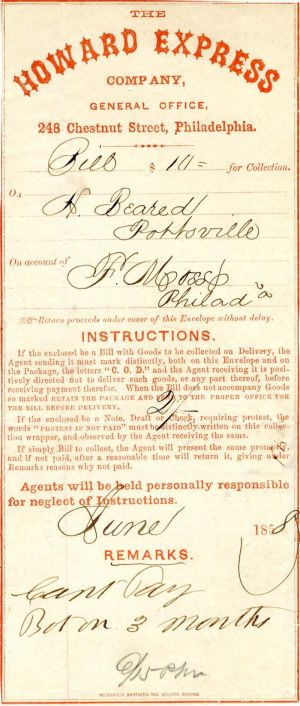 THE
HOWARD EXPRESS
COMPANY,
GENERAL OFFICE,
248 Chestnut Street, Philadelphia.
Bill $ 10= for Collection.
On
H. Beared
Pottsville
On account of F. Moss
Philad a
Return proceeds under cover of this Envelope without delay.
INSTRUCTIONS.
If the enclosed be a Bill with Goods to be collected on Delivery, the
Agent sending it must mark distinctly, both on this Envelope and on
the Package, the letters "C. O. D." and the Agent receiving it is pos-
itively directed not to deliver such goods, or any part thereof, before
receiving payment therefor. When the Bill does not accompany Goods
so marked RETAIN THE PACKAGE AND SEND TO THE PROPER OFFICE FOR
THE BILL BEFORE DELIVERY.
2
If the enclosed be a Note, Draft or Check, requiring protest, the
words "PROTEST IF NOT PAID" must be distinctly written on this collec-
tion wrapper, and observed by the Agent receiving the same.
If simply Bill to collect, the Agent will present the same promptly,
and if not paid, after a reasonable time will return it, giving under
Remarks reasons why not paid.
Agents will be held personally responsible
for neglect of Instructions.
June 1858
REMARKS.
Cant Pay
Bot on 3 months
McLAUGHLIN BROTHERS